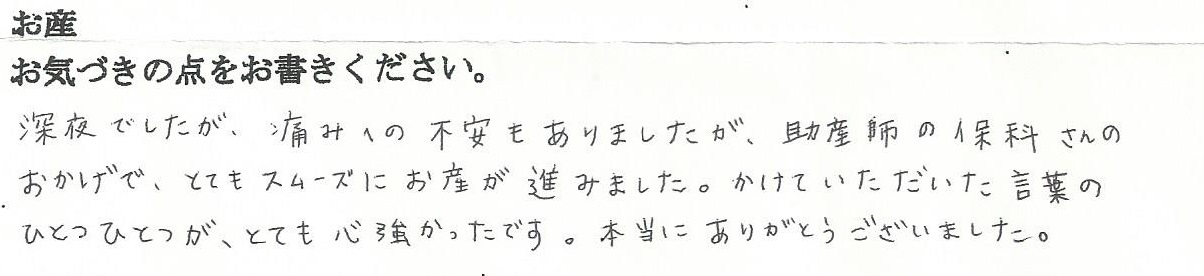 お産
お気づきの点をお書きください。
深夜でしたが、痛みへの不安もありましたが、助産師の保科さんの
おかげで、とてもスムーズにお産が進みました。かけていただいた言葉の
ひとつひとつが、とても心強かったです。本当にありがとうございました。